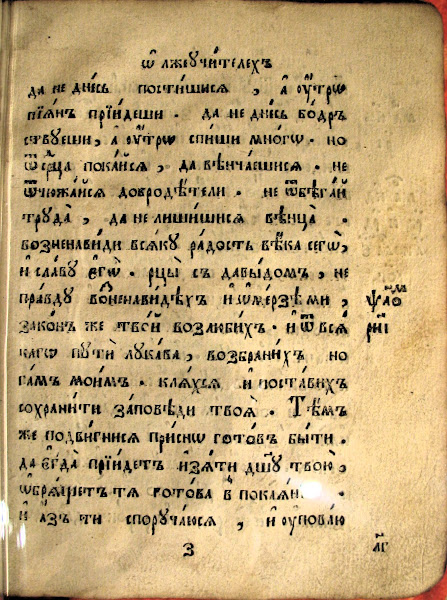 Ѡ лжеꙋчи́телехъ
да не дне́сь пости́шисѧ, а҆ ᲂу҆́трѡ
пїѧ́нъ прїи́деши. да не дне́сь бо́дръ
ствꙋеши, а҆ ᲂу҆́трѡ спи́ши мно́гѡ. но
ѿ се́рца пока́йсѧ, да вѣнча́ешисѧ. не
ѿчюжа́йсѧ добродѣ́тели. не ѿбѣга́й
трꙋда̀, да не лиши́шисѧ вѣнца̀.
возненави́ди всѧ́кꙋ ра́дость вѣ́ка сегѡ̀,
и҆ сла́вꙋ е҆гѡ̀. рцы̀ съ дв҃дмъ, не
пра́вдꙋ во́ненави́дѣхъ и҆ ѡ҆мерзѣ́ ми,
зако́нъ же тво́й возлюби́хъ. и҆ ѿ всѧ́
ѱало́м
рн҃і
кагѡ пꙋтѝ лꙋка́ва, возбрани́хъ но
га́мъ мои́мъ. клѧ́хсѧ и҆ поста́вихъ
сохрани́ти за́повѣди твоѧ̀. Тѣ́мъ
же подви́гнисѧ при́снѡ гото́въ бы́ти.
да є҆гда̀ прїи́детъ и҆з̾ѧ́ти дш҃ꙋ твою̀,
ѡ҆брѧ́щетъ тѧ гото́ва в
и҆ а҆́зъ ти спорꙋча́юсѧ, и҆ ᲂу҆пова́ю
З
л҃г